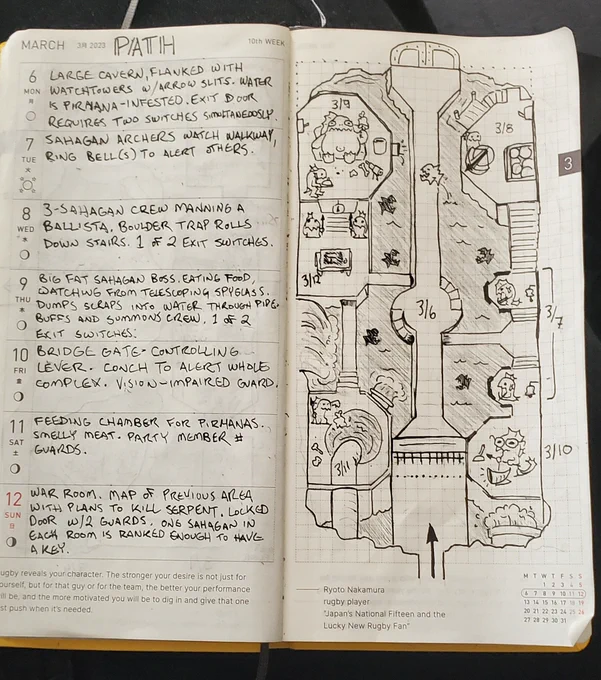 MARCH 3月 2023 PATH 10th WEEK
6
MON
LARGE CAVERN, FLANKED WITH
WATCHTOWERS W/ARROW SLITS. WATER
IS PIRHANA-INFESTED. EXIT DOOR
REQUIRES TWO SWITCHES SIMULTANEOUSLY.
7
TUE
SAHAGAN ARCHERS WATCH WALKWAY,
RING BELL(S) TO ALERT OTHERS.
8
WED
3-SAHAGAN CREW MANNING A
BALLISTA, BOULDER TRAP ROLLS
DOWN STAIRS. 1 OF 2 EXIT SWITCHES.
9
THU
BIG FAT SAHAGAN BOSS. EATING FOOD,
WATCHING FROM TELESCOPING SPYGLASS.
DUMPS SCRAPS INTO WATER THROUGH PIPE.
BUFFS AND SUMMONS CREW. 1 OF 2
EXIT SWITCHES.
10
FRI
BRIDGE GATE-CONTROLLING
LEVER. CONCH TO ALERT WHOLE
COMPLEX. VISION-IMPAIRED GUARD.
11
SAT
FEEDING CHAMBER FOR PIRHANAS.
SMELLY MEAT. PARTY MEMBER #
GUARDS.
12
SUN
WAR ROOM. MAP OF PREVIOUS AREA
WITH PLANS TO KILL SERPENT. LOCKED
DOOR W/2 GUARDS. ONE SAHAGAN IN
EACH ROOM IS RANKED ENOUGH TO HAVE
A KEY.
ugby reveals your character. The stronger your desire is not just for
ourself, but for that guy or for the team, the better your performance
ill be, and the more motivated you will be to dig in and give that one
st push when it's needed.
3/9
3/8
3
3/12
3/6
3/7
3/11
3/10
Ryoto Nakamura
rugby player
"Japan's National Fifteen and the
Lucky New Rugby Fan"
M T W T F S S
1 2 3 4 5
6 7 8 9 10 11 12
13 14 15 16 17 18 19
20 21 22 23 24 25 26
27 28 29 30 31